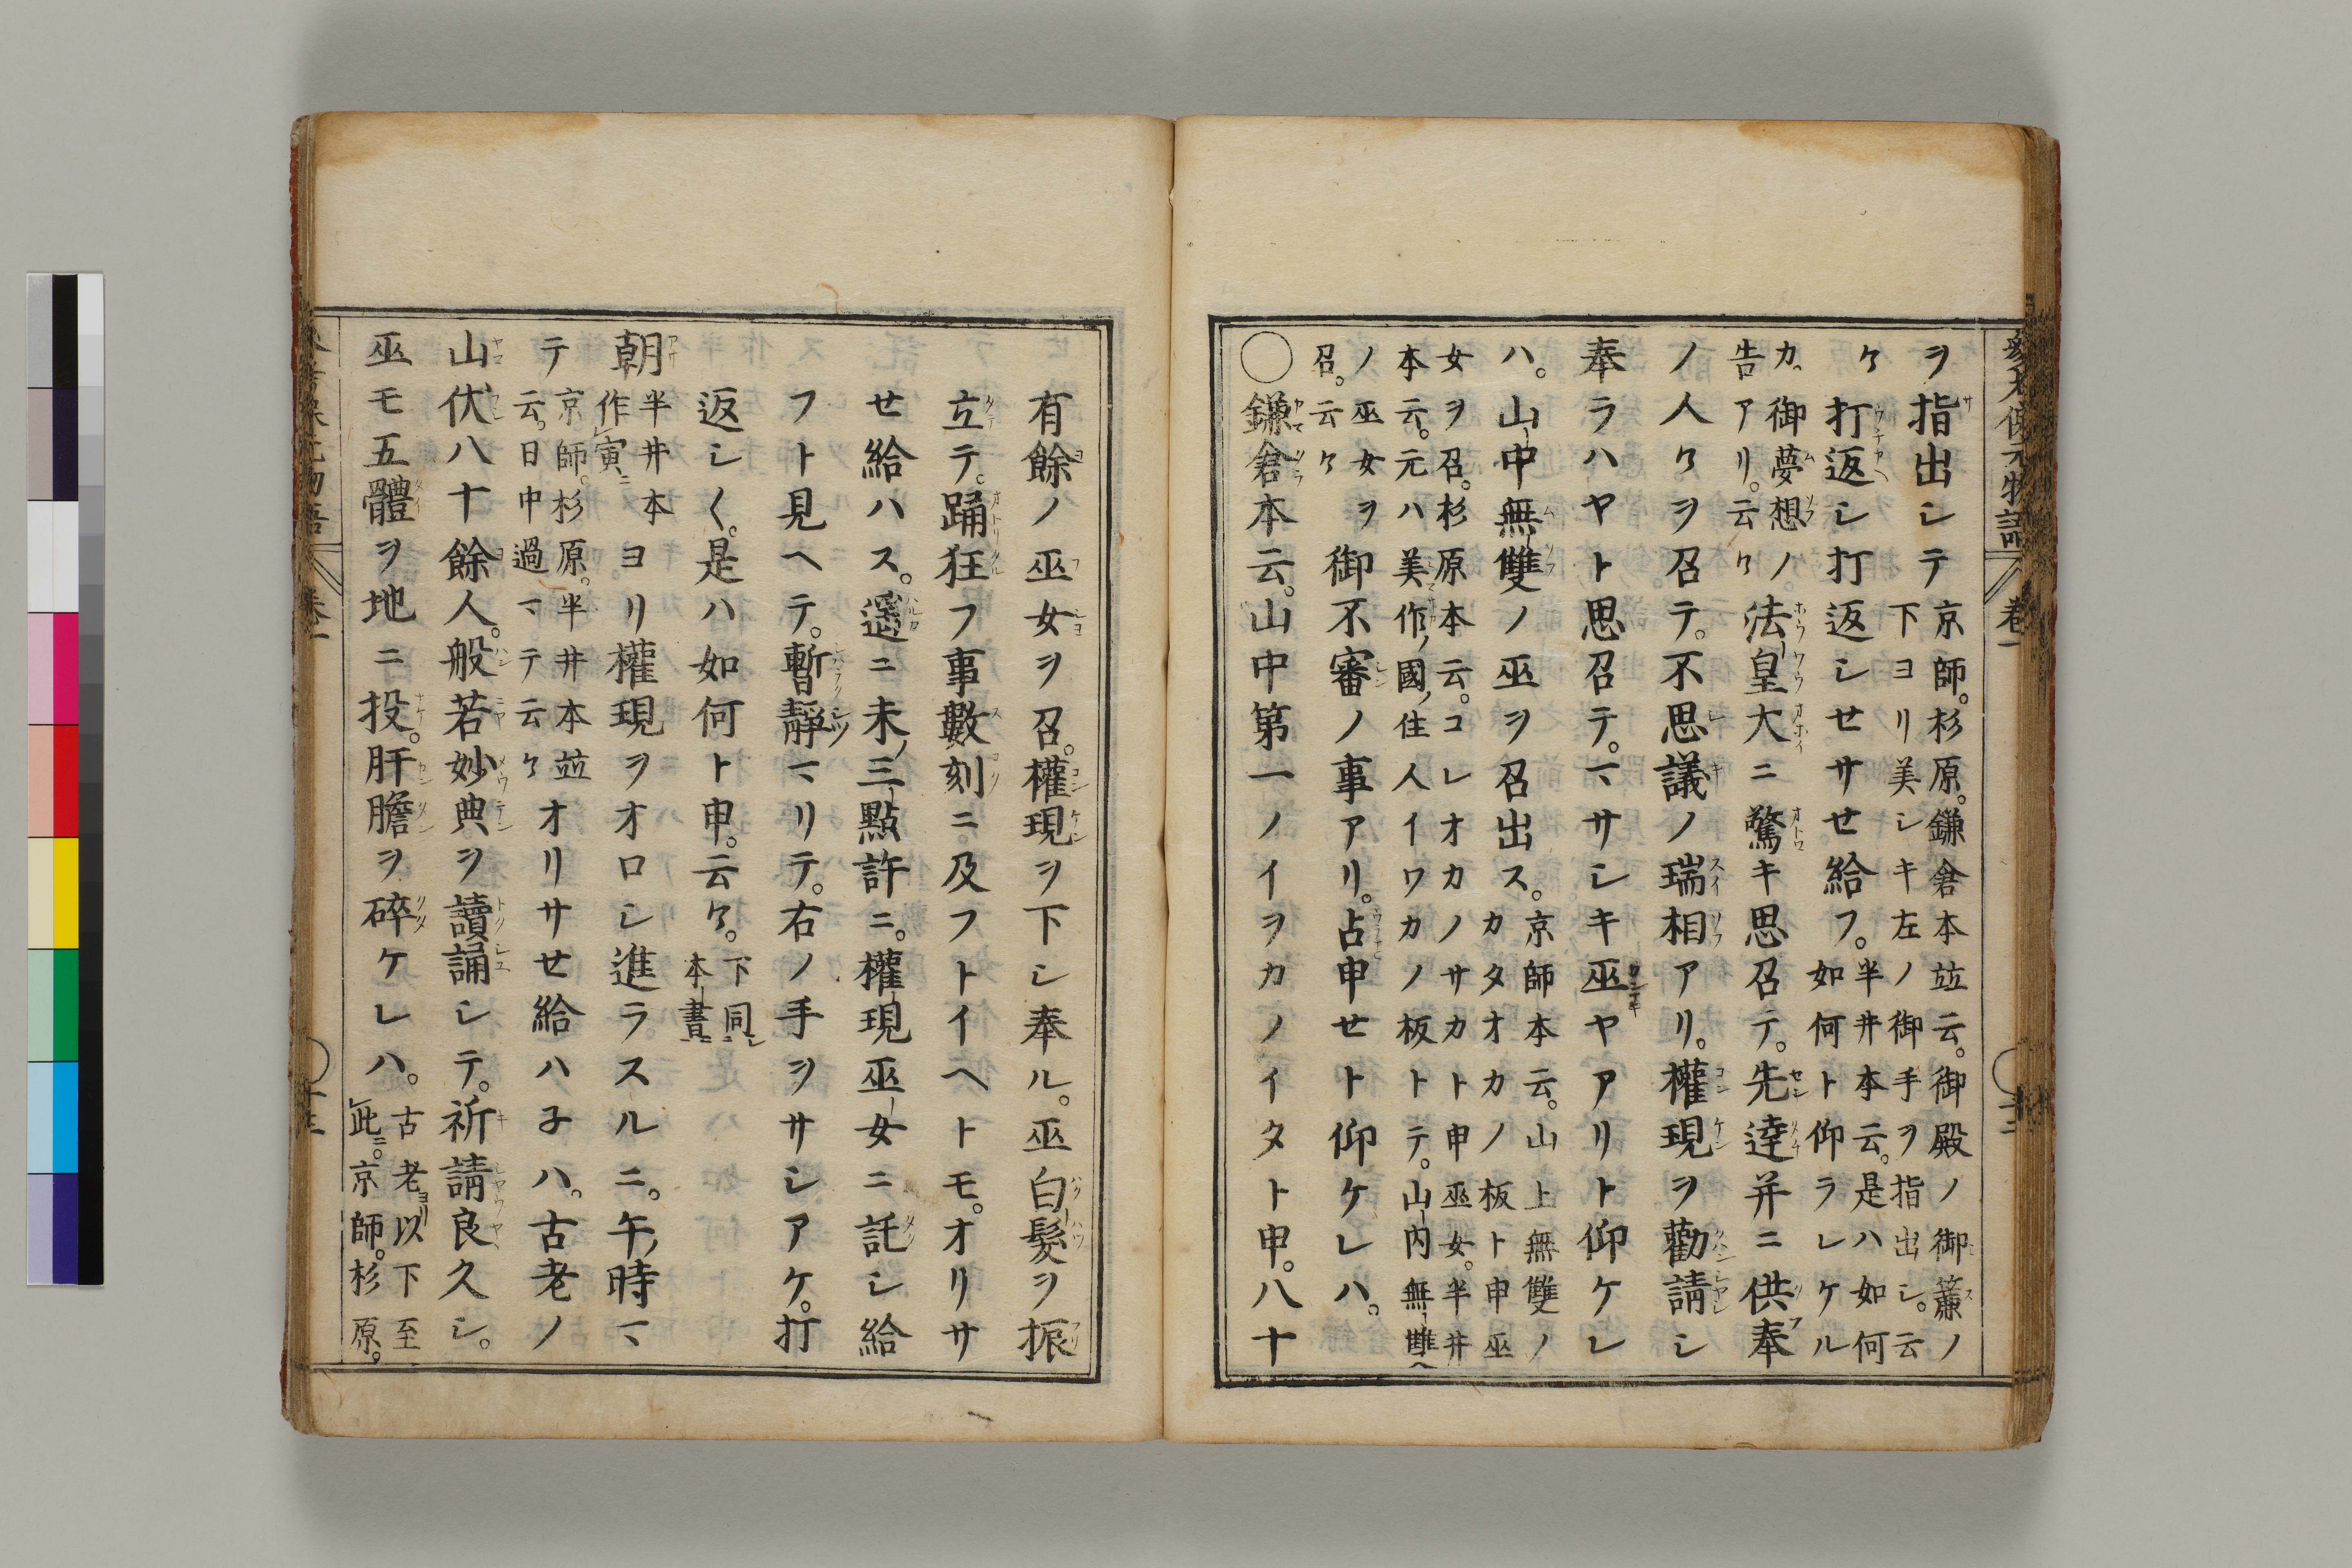 參考保元物語 卷一
ヲ指出シテ京師。杉原。鎌倉本竝云。御殿ノ御簾ノ
下ヨリ美シキ左ノ御手ヲ指出シ。云
ケ打返シ打返シセサせ給フ。半井本云。是ハ如何
如何ト仰ラレケル
カ。御夢想ノ
告アリ。云ケ
法皇大ニ驚キ思召テ。先達并ニ供奉
ノ人ケヲ召テ。不思議ノ瑞相アリ。權現ヲ勸請シ
奉ラハヤト思召テ。マサシキ巫ヤアリト仰ケレ
ハ。山中無雙ノ巫ヲ召出ス。京師本云。山上無雙ノ
カタオカノ板ト申巫
女ヲ召。杉原本云。コレオカノサカト申巫女。半井
本云。元ハ美作ノ國ノ住人イワカノ板トテ。山内無雙
ノ巫女ヲ
召。云ケ
御不審ノ事アリ。占申せト仰ケレハ。
○鎌倉本云。山中第一ノイヲカノイタト申。八十
有餘ノ巫女ヲ召。權現ヲ下シ奉ル。巫白髮ヲ振
立テ。踊狂フ事數刻ニ及フトイヘトモ。オリサ
せ給ハス。遥ニ未ノ三點許ニ。權現巫女ニ託シ給
フト見ヘテ。暫靜マリテ。右ノ手ヲサシアケ。打
返シ〱。是ハ如何ト申。云ケ。下同シ
本書ニ
朝半井本
作寅ニ
ヨリ權現ヲオロシ進ラスルニ。午ノ時マ
テ京師。杉原。半井本竝
云。日中過マテ云ケ
オリサせ給ハ子ハ。古老ノ
山伏八十餘人。般若妙典ヲ讀誦シテ。祈請良久シ。
巫モ五體ヲ地ニ投。肝膽ヲ碎ケレハ。古老ヨリ以下至
此ニ。京師。杉原。